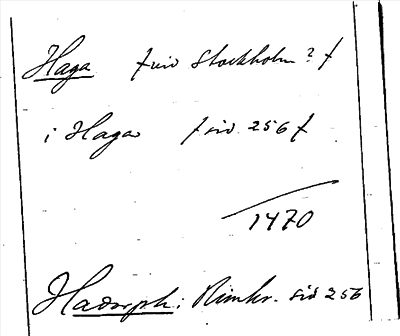 Haga vid Stockholm? f
i Haga sid 256 f
1470
Hadorph: Rimkr. sid 256